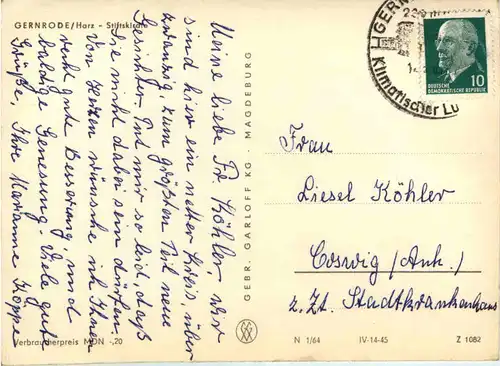 GERNRODE/Harz - Stiftskirche
Meine liebe Fr. Köhler, wir
sind hier ein netter Kreis, über
zwanzig, zum größten Teil neue
Gesichter. Tut mir so leid, daß
Sie nicht dabei sein dürfen.
Von Herzen wünsche ich Ihnen
recht gute Besserung und
baldige Genesung. Viele gute
Grüße, Ihre Marianne Koppe
Verbraucherpreis MDN -,20
GEBR. GARLOFF KG - MAGDEBURG
GERN
Klimatischer Lu
DEUTSCHE
DEMOKRATISCHE REPUBLIK
10
Frau
Liesel Köhler
Coswig (Anh.)
z. Zt. Stadtkrankenhaus
N 1/64
IV-14-45
Z 1082